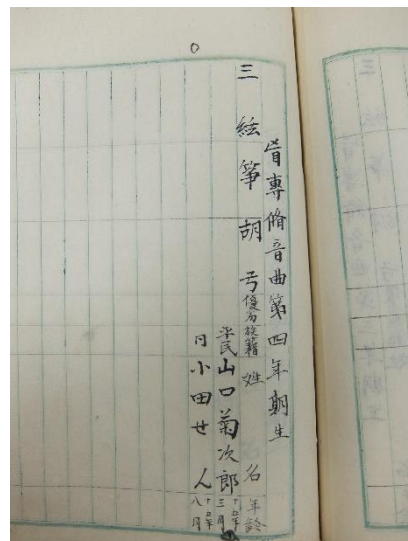 盲專脩音曲第四年期生
三絃箏胡弓 優劣 族籍 姓名 年齡
平民 山口菊次郎 三月
同 小田せん 十五年八月